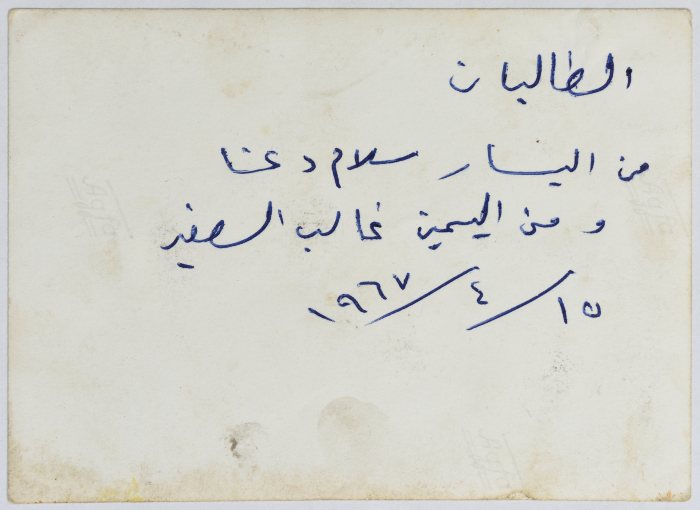 الطالبان
من اليسار سلام دعنا
و من اليمين غالب الصغير
١٥/٤/١٩٦٧